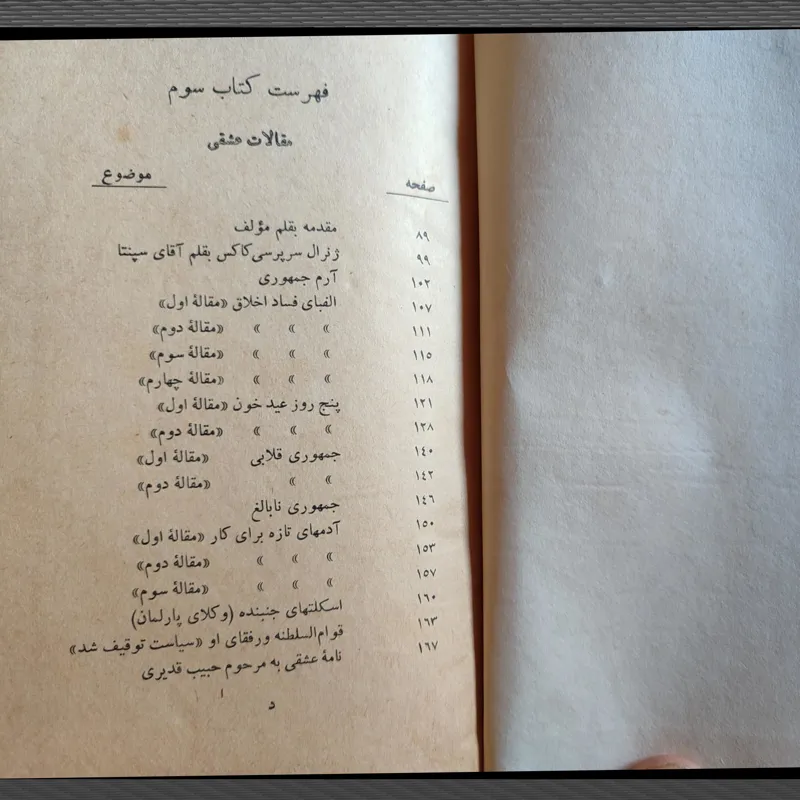 فهرست کتاب سوم
مقالات عشقی
صفحه موضوع
۸۹ مقدمه بقلم مؤلف
۹۹ ژنرال سرپرسی‌کاکس بقلم آقای سپنتا
۱۰۲ آرم جمهوری
۱۰۷ الفبای فساد اخلاق «مقالهٔ اول»
۱۱۱ » » » «مقالهٔ دوم»
۱۱۵ » » » «مقالهٔ سوم»
۱۱۸ » » » «مقالهٔ چهارم»
۱۲۱ پنج روز عید خون «مقالهٔ اول»
۱۲۸ » » » «مقالهٔ دوم»
۱۴۰ جمهوری قلابی «مقالهٔ اول»
۱۴۲ » » «مقالهٔ دوم»
۱۴۶ جمهوری نابالغ
۱۵۰ آدمهای تازه برای کار «مقالهٔ اول»
۱۵۳ » » » «مقالهٔ دوم»
۱۵۷ » » » «مقالهٔ سوم»
۱۶۰ اسکلتهای جنبنده (وکلای پارلمان)
۱۶۳ قوام‌السلطنه ورفقای او «سیاست توقیف شد»
۱۶۷ نامهٔ عشقی به مرحوم حبیب قدیری
د ا